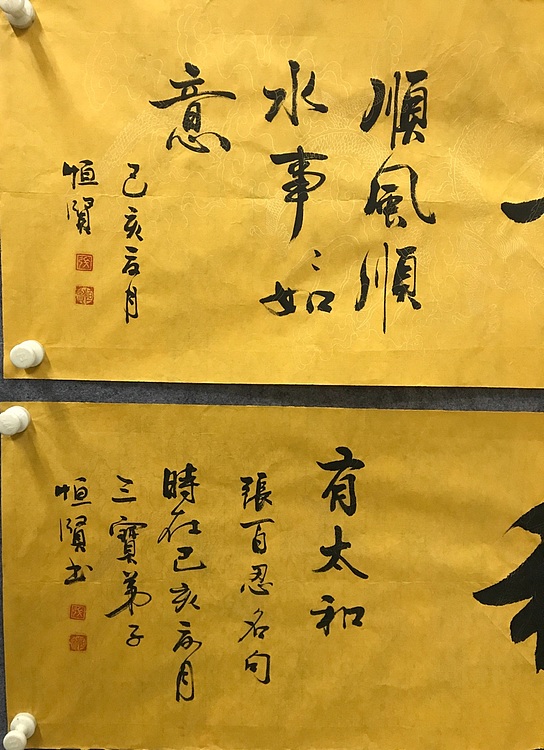 順風順
水事〻如
意
己亥亥月
恒賢
有太和
張百忍名句
時在己亥亥月
三寶弟子
恒賢书